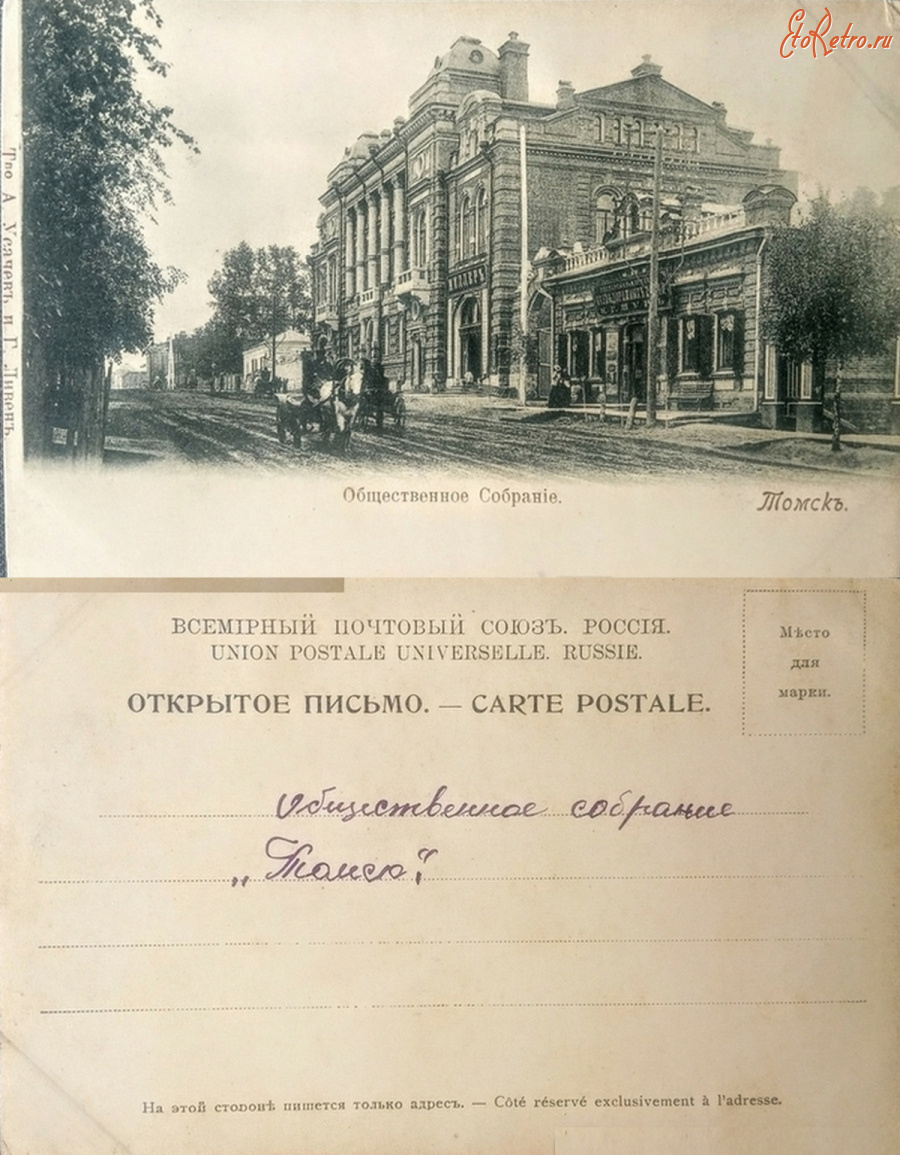 EtoRetro.ru
Т-во А. Усачевъ и Г. Ливенъ
Общественное Собраніе.
Томскъ.
ВСЕМІРНЫЙ ПОЧТОВЫЙ СОЮЗЪ. РОССІЯ.
UNION POSTALE UNIVERSELLE. RUSSIE.
ОТКРЫТОЕ ПИСЬМО. — CARTE POSTALE.
Мѣсто
для
марки.
Общественное собрание
„Томск“
На этой сторонѣ пишется только адресъ. — Côté réservé exclusivement à l'adresse.